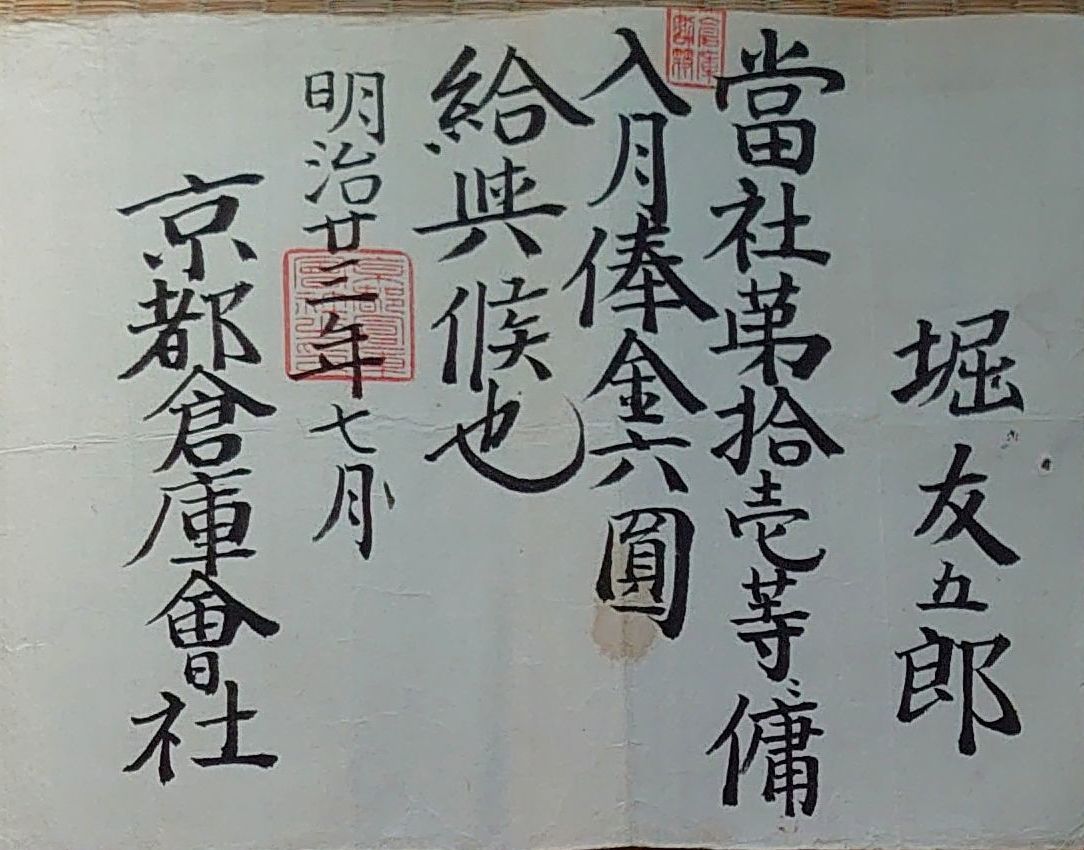 堀友五郎
當社苐拾壱等傭
入月俸金六圓
給與候也
明治廿三年七月
京都倉庫會社